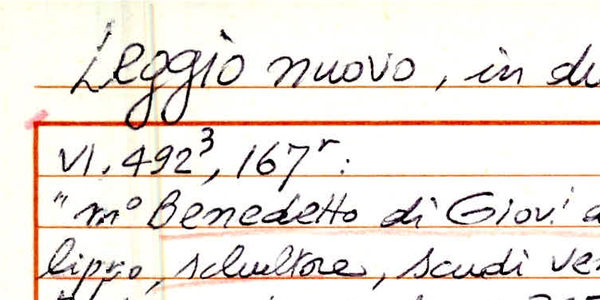 Leggìo nuovo, in du
VI. 492³, 167ʳ:
"m° Benedetto di Giov.¹ d
lippo, schultore, scudi ve